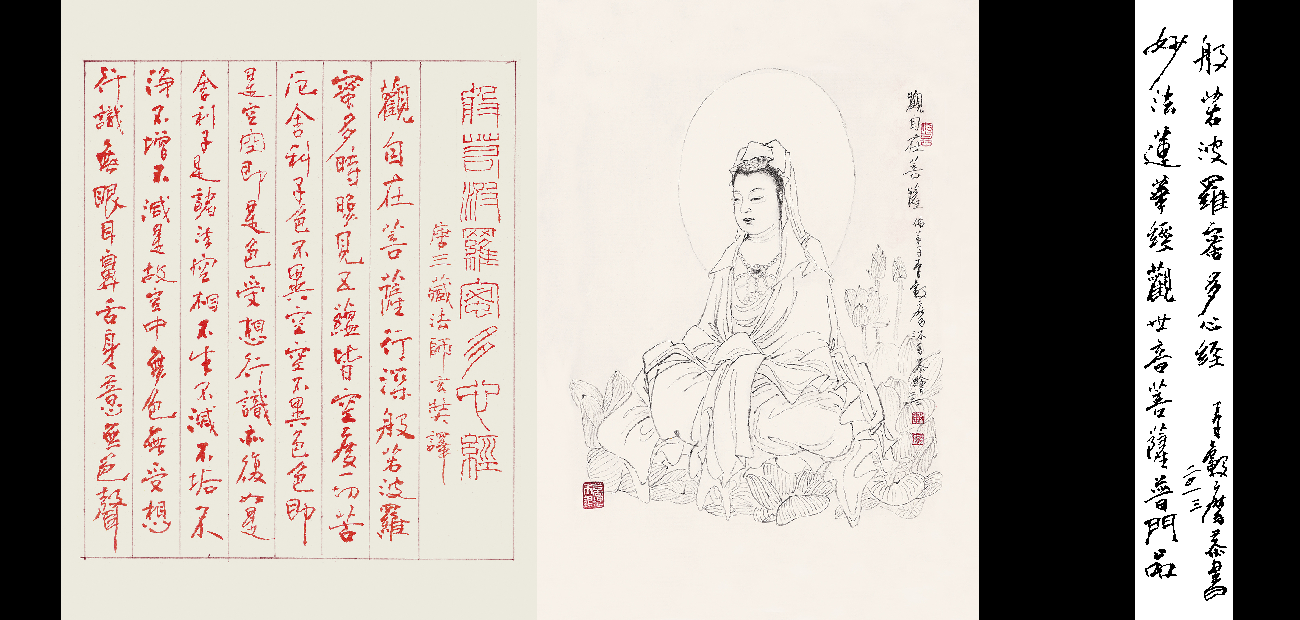 般若波羅蜜多心經
二〇一三
妙法蓮華經觀世音菩薩普門品
觀自在菩薩
般若波羅蜜多心經
唐三藏法師玄奘譯
觀自在菩薩行深般若波羅
蜜多時照見五蘊皆空度一切苦
厄舍利子色不異空空不異色色即
是空空即是色受想行識亦復如是
舍利子是諸法空相不生不滅不垢不
淨不增不減是故空中無色無受想
行識無眼耳鼻舌身意無色聲